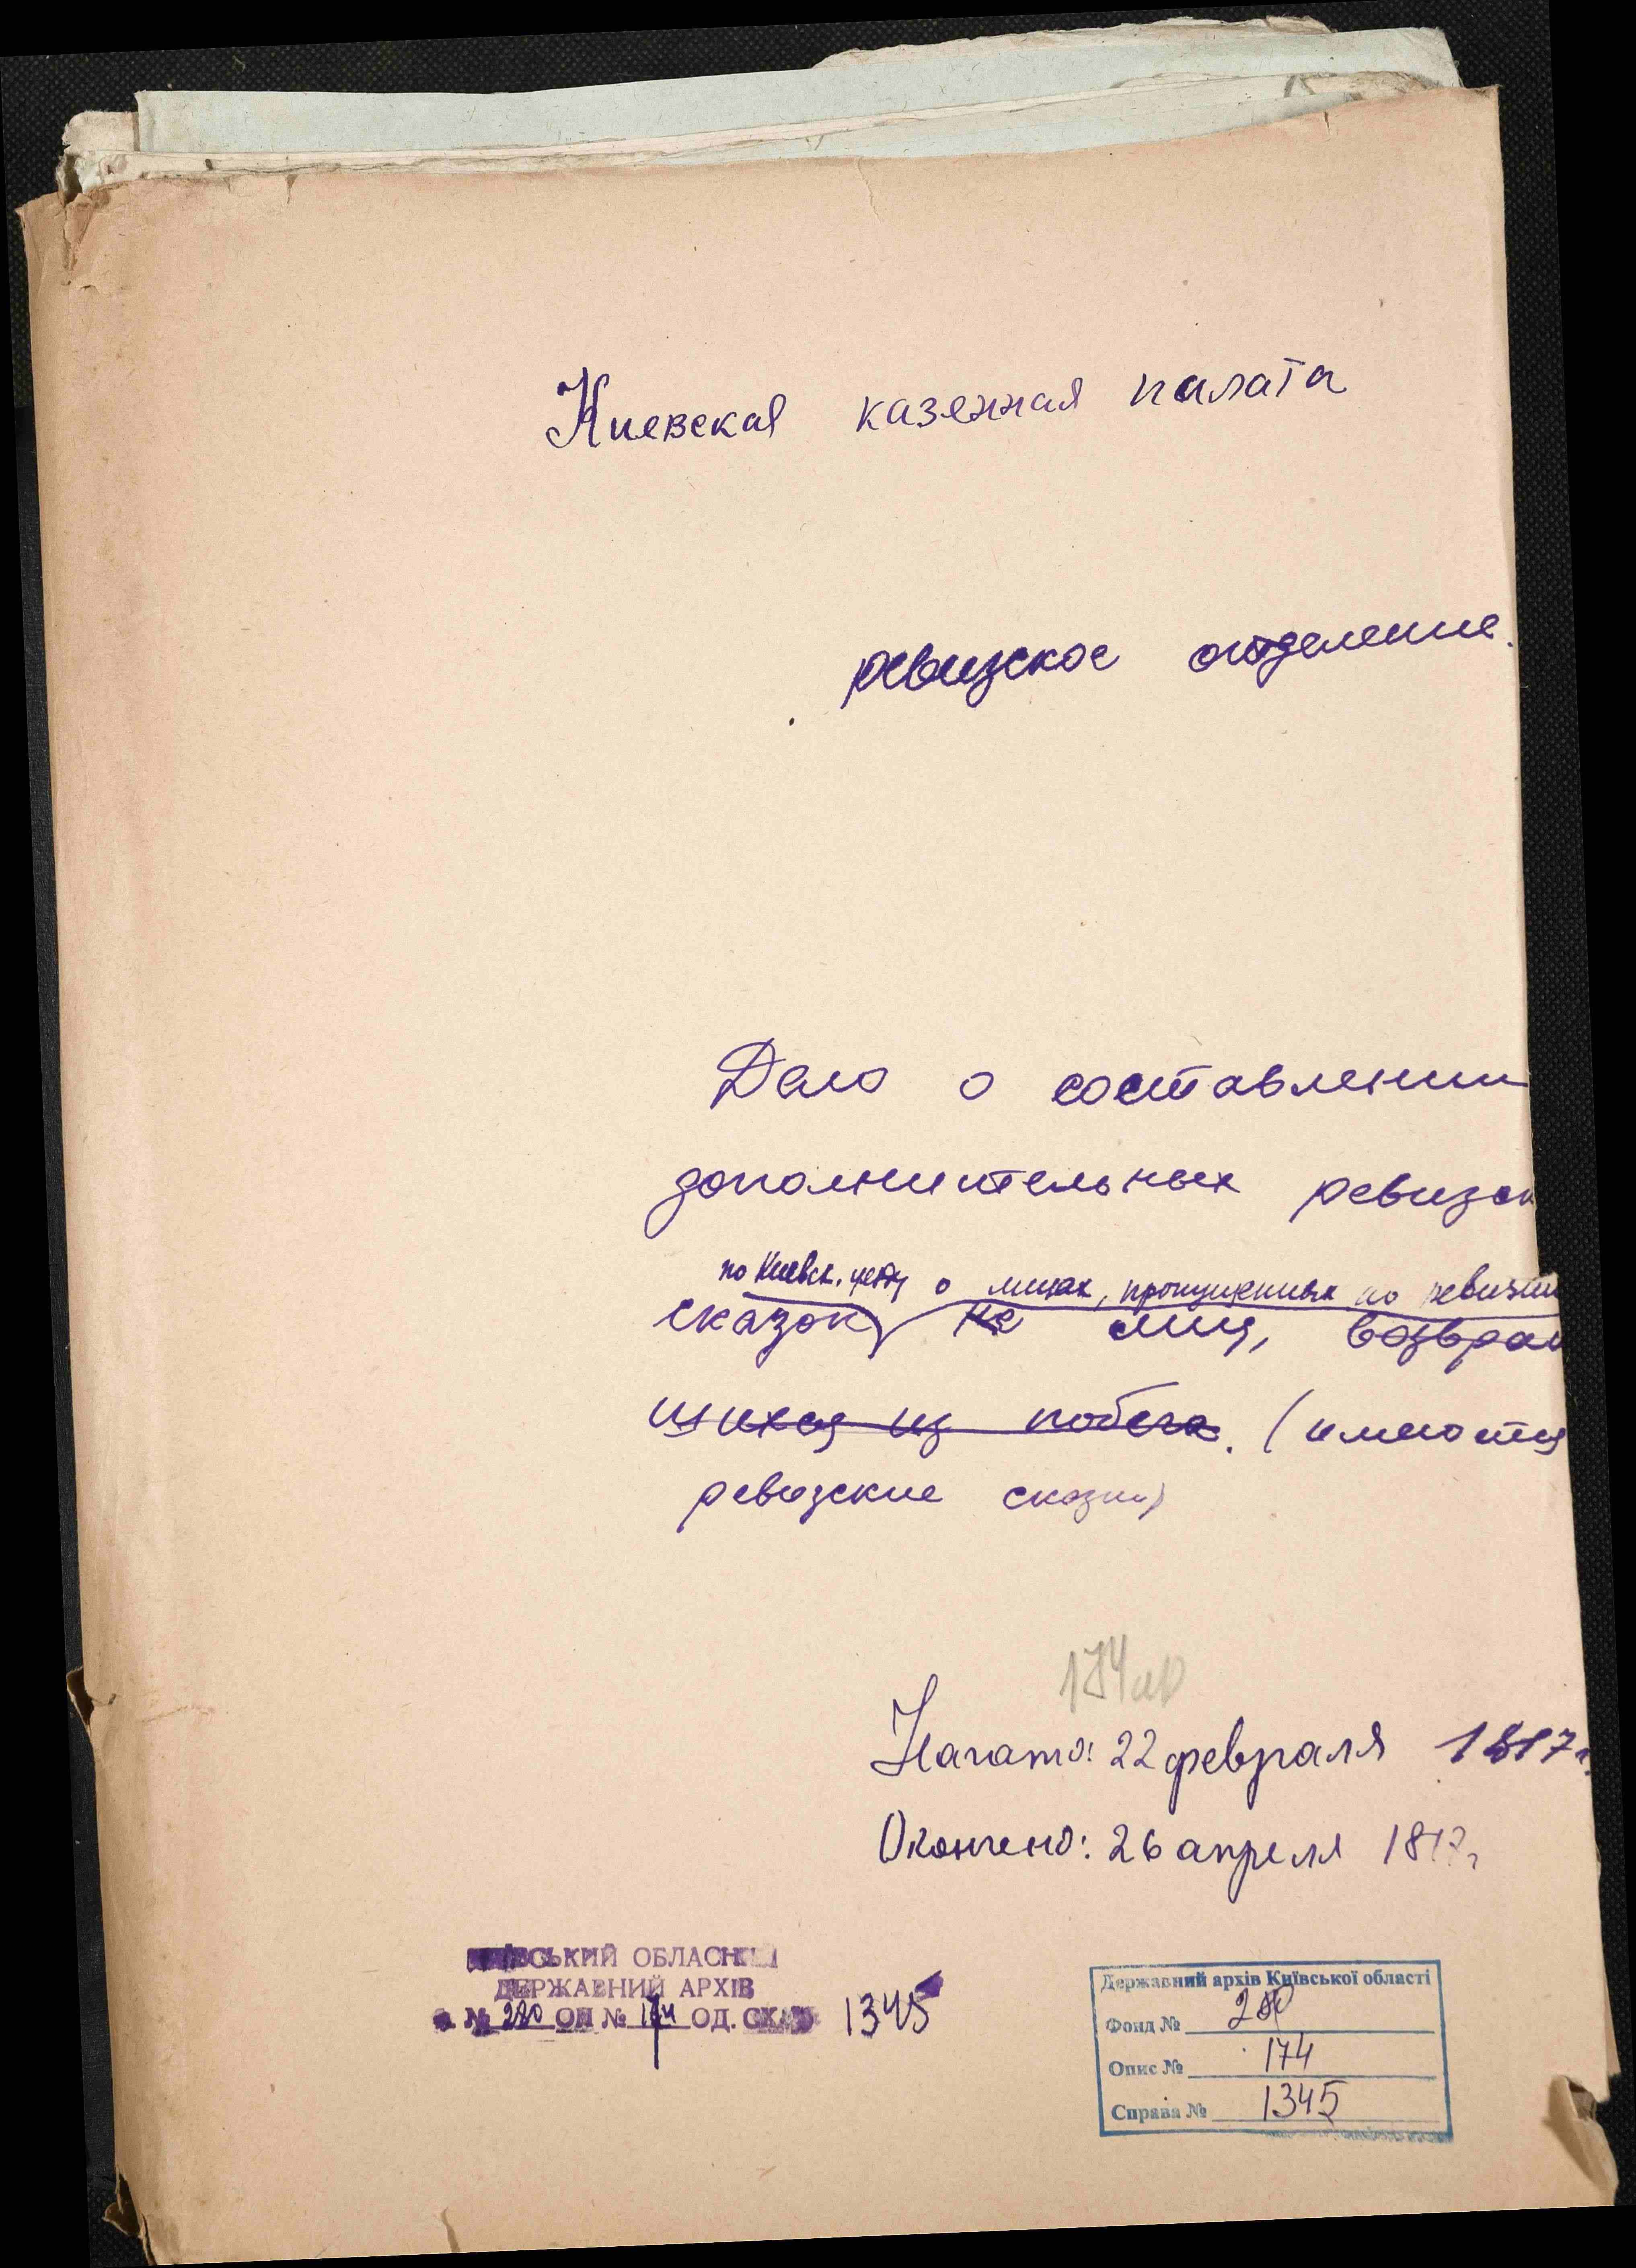 Киевская казенная палата
ревизское отделение.
Дело о составлении
дополнительных ревизск
по Киевск. уезду о лицах, пропущенных по ревизии
сказок на лиц, возврат
ихся из побега. (имеются
ревизские сказки)
Начато: 22 февраля 1817 г.
Окончено: 26 апреля 1817 г
ВСЬКИЙ ОБЛАСН
ДЕРЖАВНИЙ АРХІВ
№ 280 ОП № 174 ОД. СХ. 1345
Державний архів Київської області
Фонд № 280
Опис № 174
Справа № 1345